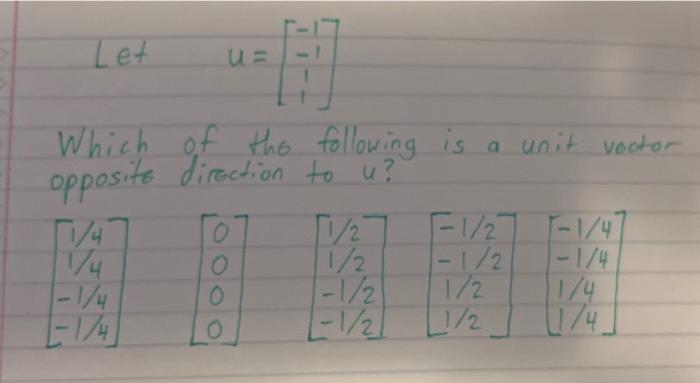 Let u = [-1 -1 1 1]
Which of the following is a unit vector
opposite direction to u?
[1/4 [0 [1/2 [-1/2 [-1/4
1/4 0 1/2 -1/2 -1/4
-1/4 0 -1/2 1/2 1/4
-1/4] 0] -1/2] 1/2] 1/4]